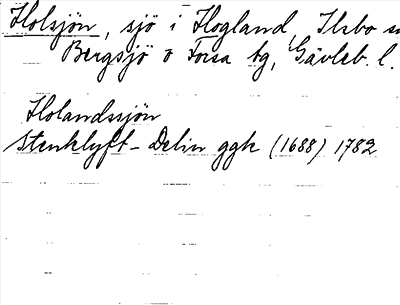 Holsjön, sjö i Hogland Ilsbo sn
Bergsjö o Forsa tg, Gävleb. l.
Holandssjön
Stenklyft-Delin ggk (1688) 1782